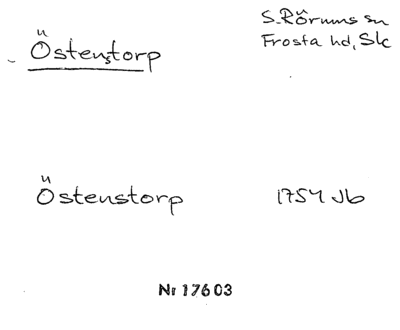 S. Rörums sn
Ü
Östenstorp
Frosta hd, Sk
Ü
Östenstorp 1754 Jb
Nr 17603